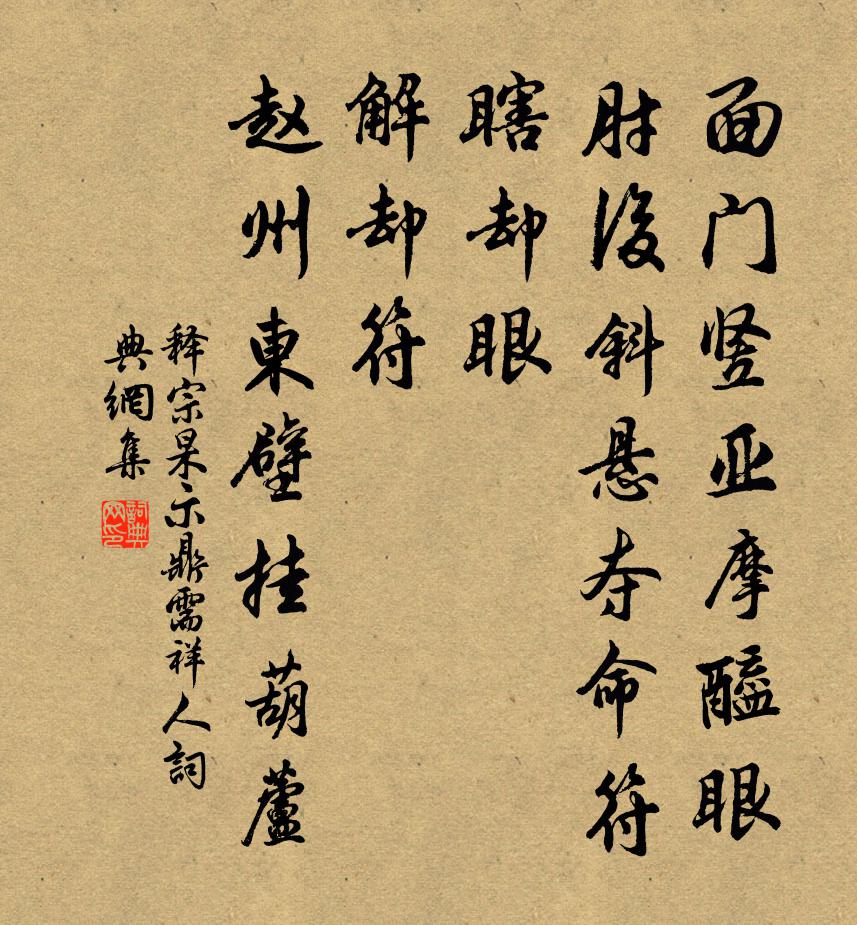 面门竖亚摩醯眼
肘後斜悬夺命符
瞎却眼
解却符
赵州東壁挂葫蘆
释宗杲·示鼎需祥人詞
典網集
詞典網印